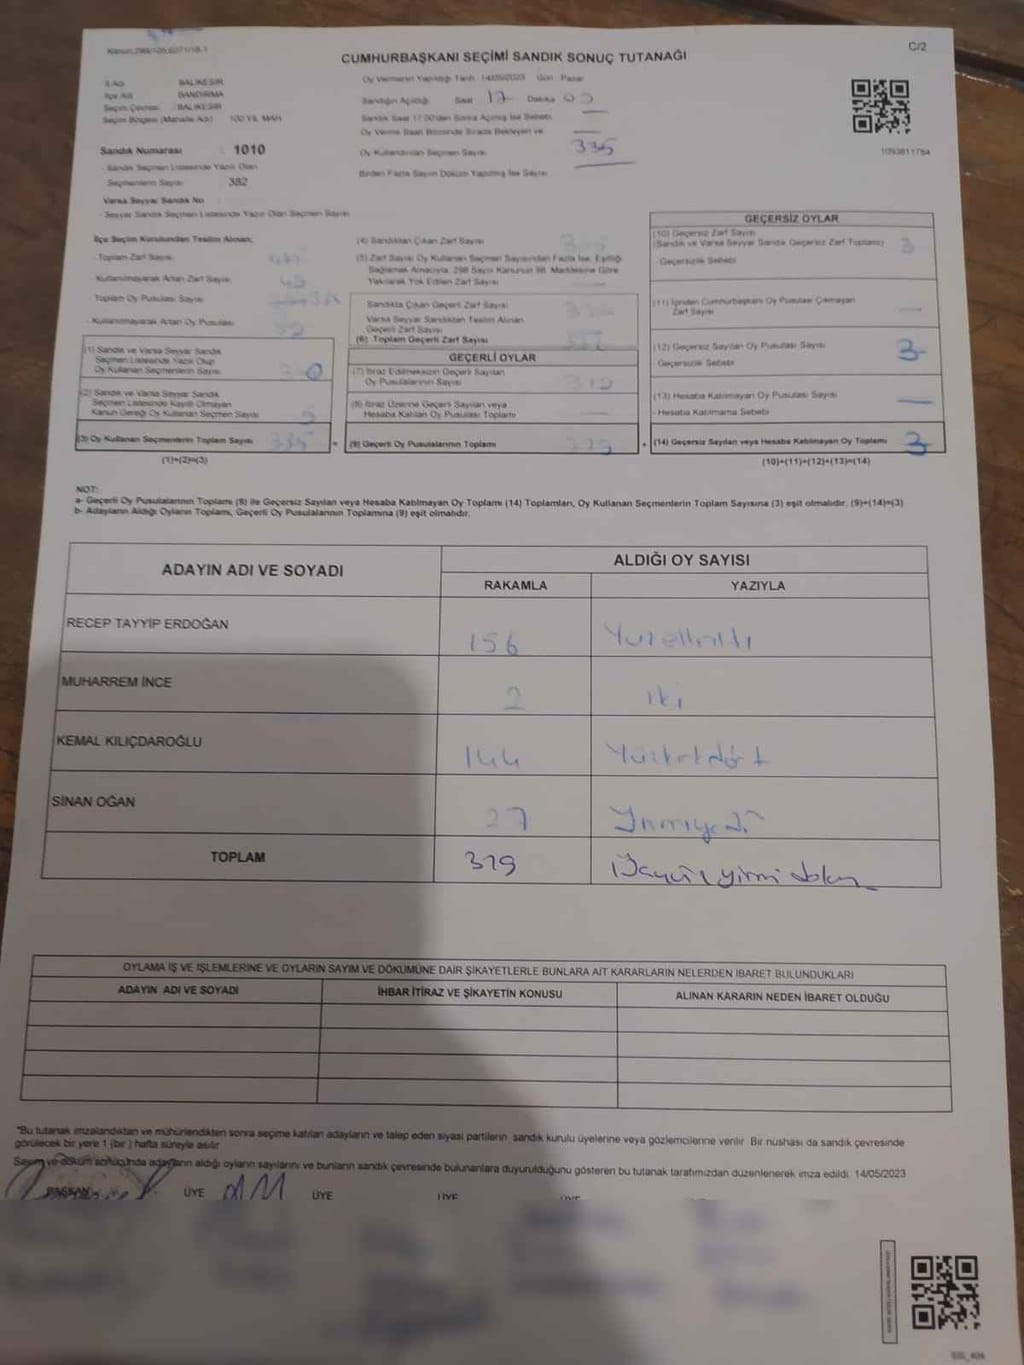 C/2
CUMHURBAŞKANI SEÇİMİ SANDIK SONUÇ TUTANAĞI
İl Adı : BALIKESİR
İlçe Adı : BANDIRMA
Seçim Çevresi : BALIKESİR
Seçim Bölgesi (Mahalle Adı) : 100.YIL MAH
Oy Vermenin Yapıldığı Tarih 14/05/2023 Gün Pazar
Sandığın Açıldığı Saat 17 Dakika
Sandık Saat 17.00'den Sonra Açılmış İse Sebebi
Oy Verme Saati Bitiminde Sırada Bekleyen ve
Oy Kullandırılan Seçmen Sayısı 335
Birden Fazla Sayım Döküm Yapılmış İse Sayısı
1093811784
Sandık Numarası : 1010
- Sandık Seçmen Listesinde Yazılı Olan
Seçmenlerin Sayısı 382
Varsa Seyyar Sandık No
- Seyyar Sandık Seçmen Listesinde Yazılı Olan Seçmen Sayısı
İlçe Seçim Kurulundan Teslim Alınan;
- Toplam Zarf Sayısı
- Kullanılmayarak Artan Zarf Sayısı
- Toplam Oy Pusulası Sayısı
- Kullanılmayarak Artan Oy Pusulası
(1) Sandık ve Varsa Seyyar Sandık
Seçmen Listesinde Yazılı Olup
Oy Kullanan Seçmenlerin Sayısı
(2) Sandık ve Varsa Seyyar Sandık
Seçmen Listesinde Kayıtlı Olmayan
Kanun Gereği Oy Kullanan Seçmen Sayısı 5
(3) Oy Kullanan Seçmenlerin Toplam Sayısı 335
(1)+(2)=(3)
(4) Sandıktan Çıkan Zarf Sayısı
(5) Zarf Sayısı Oy Kullanan Seçmen Sayısından Fazla İse, Eşitliği
Sağlamak Amacıyla, 298 Sayılı Kanunun 98. Maddesine Göre
Yakılarak Yok Edilen Zarf Sayısı
Sandıkta Çıkan Geçerli Zarf Sayısı
Varsa Seyyar Sandıktan Teslim Alınan
Geçerli Zarf Sayısı
(6) Toplam Geçerli Zarf Sayısı
GEÇERLİ OYLAR
(7) İtiraz Edilmeksizin Geçerli Sayılan
Oy Pusulalarının Sayısı
(8) İtiraz Üzerine Geçerli Sayılan veya
Hesaba Katılan Oy Pusulası Toplamı
= (9) Geçerli Oy Pusulalarının Toplamı
GEÇERSİZ OYLAR
(10) Geçersiz Zarf Sayısı
(Sandık ve Varsa Seyyar Sandık Geçersiz Zarf Toplamı) 3
- Geçersizlik Sebebi
(11) İçinden Cumhurbaşkanı Oy Pusulası Çıkmayan
Zarf Sayısı
(12) Geçersiz Sayılan Oy Pusulası Sayısı 3
- Geçersizlik Sebebi
(13) Hesaba Katılmayan Oy Pusulası Sayısı
- Hesaba Katılmama Sebebi
+ (14) Geçersiz Sayılan veya Hesaba Katılmayan Oy Toplamı 3
(10)+(11)+(12)+(13)=(14)
NOT:
a- Geçerli Oy Pusulalarının Toplamı (9) ile Geçersiz Sayılan veya Hesaba Katılmayan Oy Toplamı (14) Toplamları, Oy Kullanan Seçmenlerin Toplam Sayısına (3) eşit olmalıdır. (9)+(14)=(3)
b- Adayların Aldığı Oyların Toplamı, Geçerli Oy Pusulalarının Toplamına (9) eşit olmalıdır.
ADAYIN ADI VE SOYADI
ALDIĞI OY SAYISI
RAKAMLA
YAZIYLA
RECEP TAYYİP ERDOĞAN 156 Yüzellialtı
MUHARREM İNCE 2 iki
KEMAL KILIÇDAROĞLU 144 Yüzkırkdört
SİNAN OĞAN 27 Yirmiyedi
TOPLAM 329 Üçyüz yirmi dokuz
OYLAMA İŞ VE İŞLEMLERİNE VE OYLARIN SAYIM VE DÖKÜMÜNE DAİR ŞİKAYETLERLE BUNLARA AİT KARARLARIN NELERDEN İBARET BULUNDUKLARI
ADAYIN ADI VE SOYADI
İHBAR İTİRAZ VE ŞİKAYETİN KONUSU
ALINAN KARARIN NEDEN İBARET OLDUĞU
*Bu tutanak imzalandıktan ve mühürlendikten sonra seçime katılan adayların ve talep eden siyasi partilerin sandık kurulu üyelerine veya gözlemcilerine verilir. Bir nüshası da sandık çevresinde
görülecek bir yere 1 (bir) hafta süreyle asılır
Sayım ve döküm sonucunda adayların aldığı oyların sayılarını ve bunların sandık çevresinde bulunanlara duyurulduğunu gösteren bu tutanak tarafımızdan düzenlenerek imza edildi. 14/05/2023
BAŞKAN ÜYE ÜYE ÜYE ÜYE